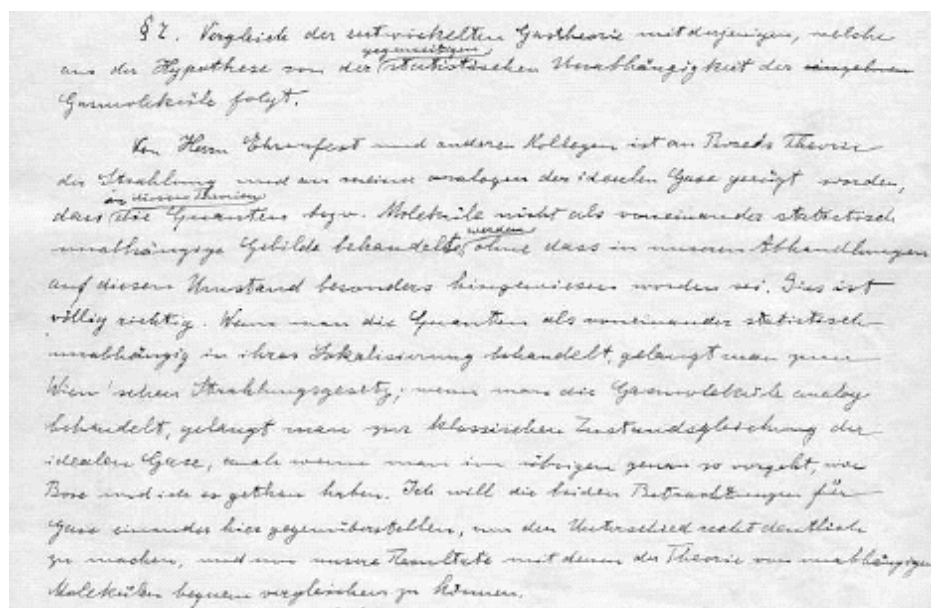 § 7. Vergleich der entwickelten Gastheorie mit derjenigen, welche
gegenseitigen
aus der Hypothese von der statistischen Unabhängigkeit der einzelnen
Gasmoleküle folgt.
Von Herrn Ehrenfest und anderen Kollegen ist an Bose's Theorie
der Strahlung und an meiner analogen der idealen Gase gerügt worden,
in diesen Theorien
dass die Quanten bezw. Moleküle nicht als voneinander statistisch
werden
unabhängige Gebilde behandelt, ohne dass in unseren Abhandlungen
auf diesen Umstand besonders hingewiesen worden sei. Dies ist
völlig richtig. Wenn man die Quanten als voneinander statistisch
unabhängig in ihrer Lokalisierung behandelt, gelangt man zum
Wien'schen Strahlungsgesetz; wenn man die Gasmoleküle analog
behandelt, gelangt man zur klassischen Zustandsgleichung der
idealen Gase, auch wenn man im übrigen genau so vorgeht, wie
Bose und ich es gethan haben. Ich will die beiden Betrachtungen für
Gase einander hier gegenüberstellen, um den Unterschied recht deutlich
zu machen, und um unsere Resultate mit denen der Theorie von unabhängigen
Molekülen bequem vergleichen zu können.